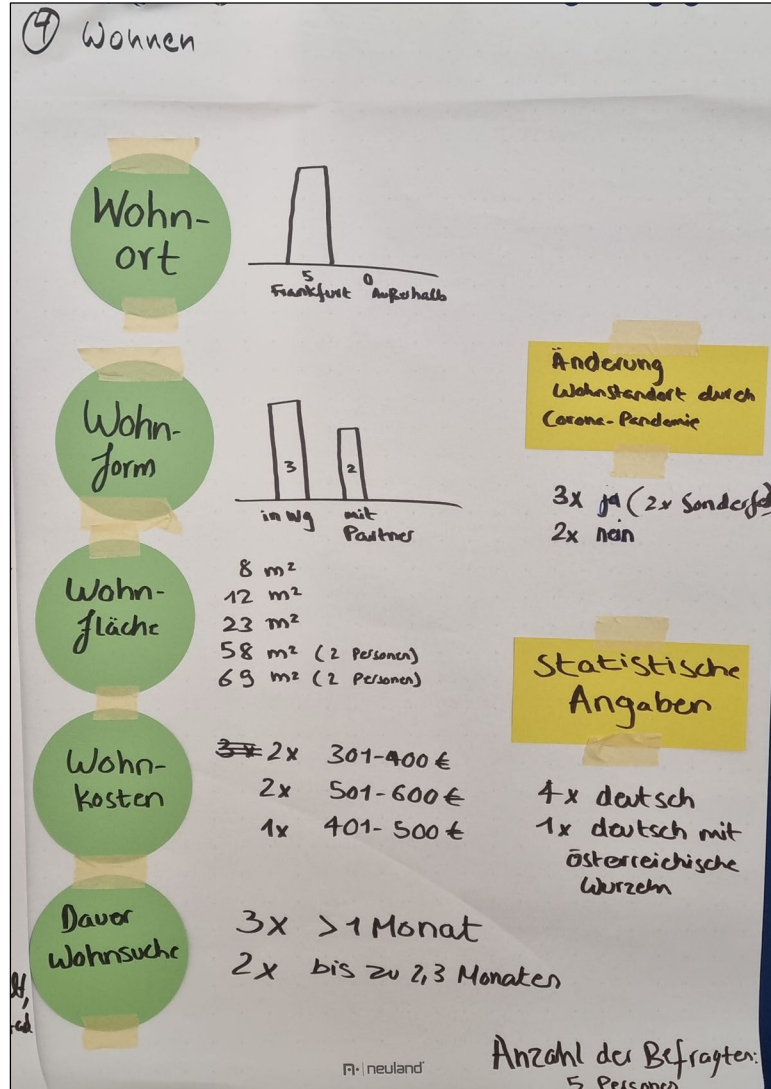 ④ Wohnen
Wohn-
ort
5
Frankfurt
0
Außerhalb
Wohn-
form
3
in WG
2
mit
Partner
Wohn-
fläche
8 m²
12 m²
23 m²
58 m² (2 Personen)
69 m² (2 Personen)
Wohn-
kosten
3x 2x 301-400 €
2x 501-600 €
1x 401-500 €
Dauer
Wohnsuche
3x >1 Monat
2x bis zu 2,3 Monaten
Änderung
Wohnstandort durch
Corona-Pandemie
3x ja (2x
2x nein
Statistische
Angaben
4x deutsch
1x deutsch mit
österreichische
Wurzeln
neuland
Anzahl der Befragten:
5 Personen